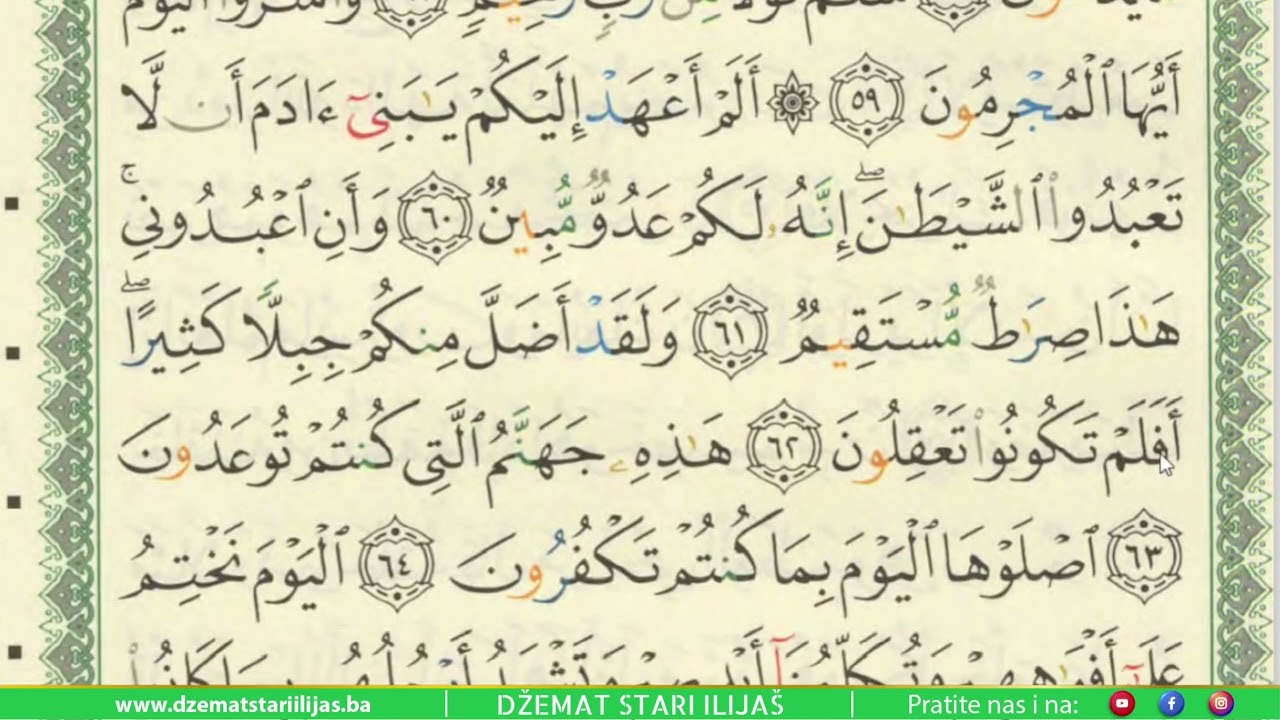 أَيُّهَا ٱلْمُجْرِمُونَ ٥٩ ۞ أَلَمْ أَعْهَدْ إِلَيْكُمْ يَـٰبَنِىٓ ءَادَمَ أَن لَّا
تَعْبُدُوا۟ ٱلشَّيْطَـٰنَ ۖ إِنَّهُۥ لَكُمْ عَدُوٌّ مُّبِينٌ ٦٠ وَأَنِ ٱعْبُدُونِى ۚ
هَـٰذَا صِرَٰطٌ مُّسْتَقِيمٌ ٦١ وَلَقَدْ أَضَلَّ مِنكُمْ جِبِلًّا كَثِيرًا ۖ
أَفَلَمْ تَكُونُوا۟ تَعْقِلُونَ ٦٢ هَـٰذِهِۦ جَهَنَّمُ ٱلَّتِى كُنتُمْ تُوعَدُونَ
٦٣ ٱصْلَوْهَا ٱلْيَوْمَ بِمَا كُنتُمْ تَكْفُرُونَ ٦٤ ٱلْيَوْمَ نَخْتِمُ
www.dzematstariilijas.ba | DŽEMAT STARI ILIJAŠ | Pratite nas i na: